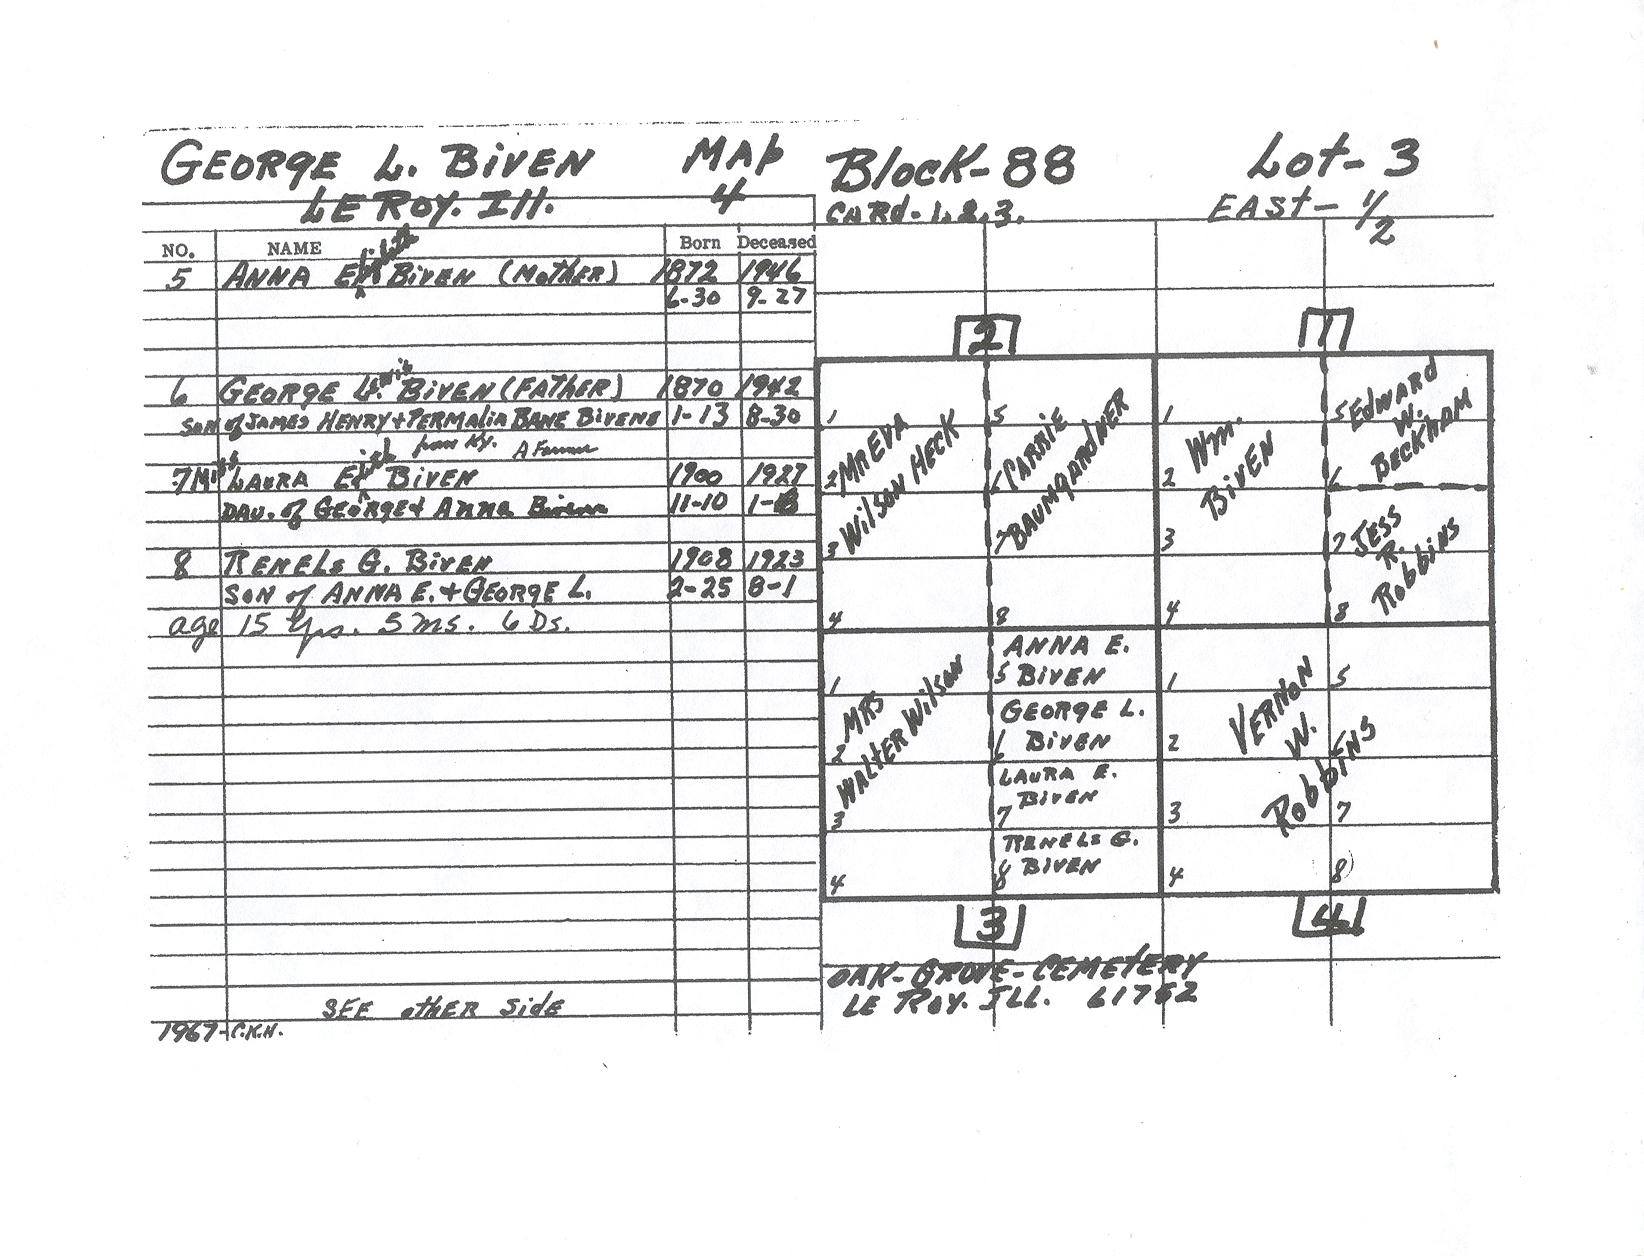 GEORGE L. BIVEN
LE ROY. Ill.
MAP
4
Block-88
Lot-3
CARd-1,2,3.
EAST-1/2
NO. NAME Born Deceased
5 ANNA BIVEN (MOTHER) 1872 1946
6-30 9-27
6 GEORGE BIVEN (FATHER) 1870 1942
SON of JAMES HENRY + PERMALIA BANE BIVENS 1-13 8-30
from Ky. A Farmer
7 Miss LAURA BIVEN 1900 1927
DAU. of GEORGE + ANNA Biven 11-10
8 RENELS G. BIVEN 1908 1923
SON of ANNA E. + GEORGE L. 2-25 8-1
age 15 Yrs. 5 ms. 6 Ds.
SEE other side
1967-C.K.H.
2
1
1 5 1 5
2 6 2 6
3 7 3 7
4 8 4 8
MR EVA
WILSON HECK
CARRIE
BAUMGARDNER
Wm.
BIVEN
EDWARD
W.
BECKHAM
JESS
R.
Robbins
1 5 1 5
2 6 2 6
3 7 3 7
4 8 4 8
MRS
WALTER WILSON
ANNA E.
BIVEN
GEORGE L.
BIVEN
LAURA E.
BIVEN
RENELS G.
BIVEN
VERNON
W.
RobbINS
3
4
OAK-GROVE-CEMETERY
LE ROY. ILL. 61752